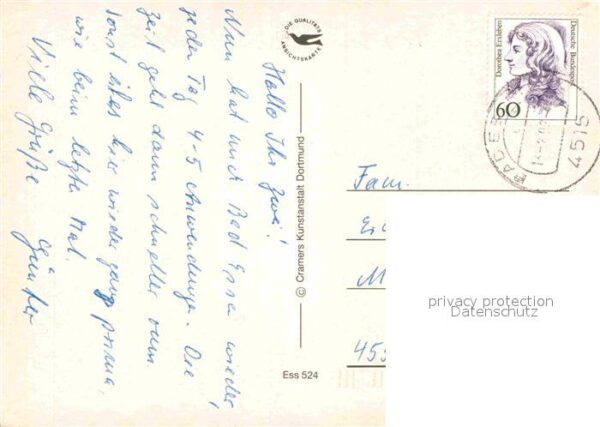 Hallo Ihr zwei!
Nun hat mich Bad Essen wieder,
jeden Tag 4-5 Anwendungen. Die
Zeit geht dann schneller rum
Sonst ist es hier wieder ganz prima,
wie beim letzten Mal.
Viele Grüße Günter
DIE QUALITÄTS
ANSICHTSKARTE
© Cramers Kunstanstalt Dortmund
Ess 524
Dorothea Erxleben
Deutsche Bundespost
60
4515
BAD ESSEN
Fam.
privacy protection
Datenschutz